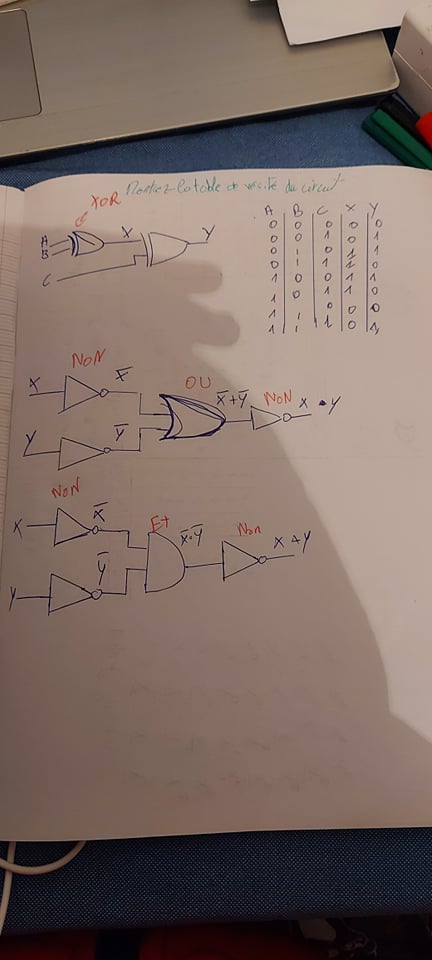 XOR Montrez la table de vérité du circuit
A B C X Y
0 0 0 0 0
0 0 1 0 1
0 1 0 1 1
0 1 1 1 0
1 0 0 1 1
1 0 1 1 0
1 1 0 0 0
1 1 1 0 1
A
B
X
Y
C
NON
X
X̅
OU
X̅+Y̅
NON
X • Y
Y
Y̅
NON
X
X̅
Et
X̅.Y̅
Non
X + Y
Y
Y̅